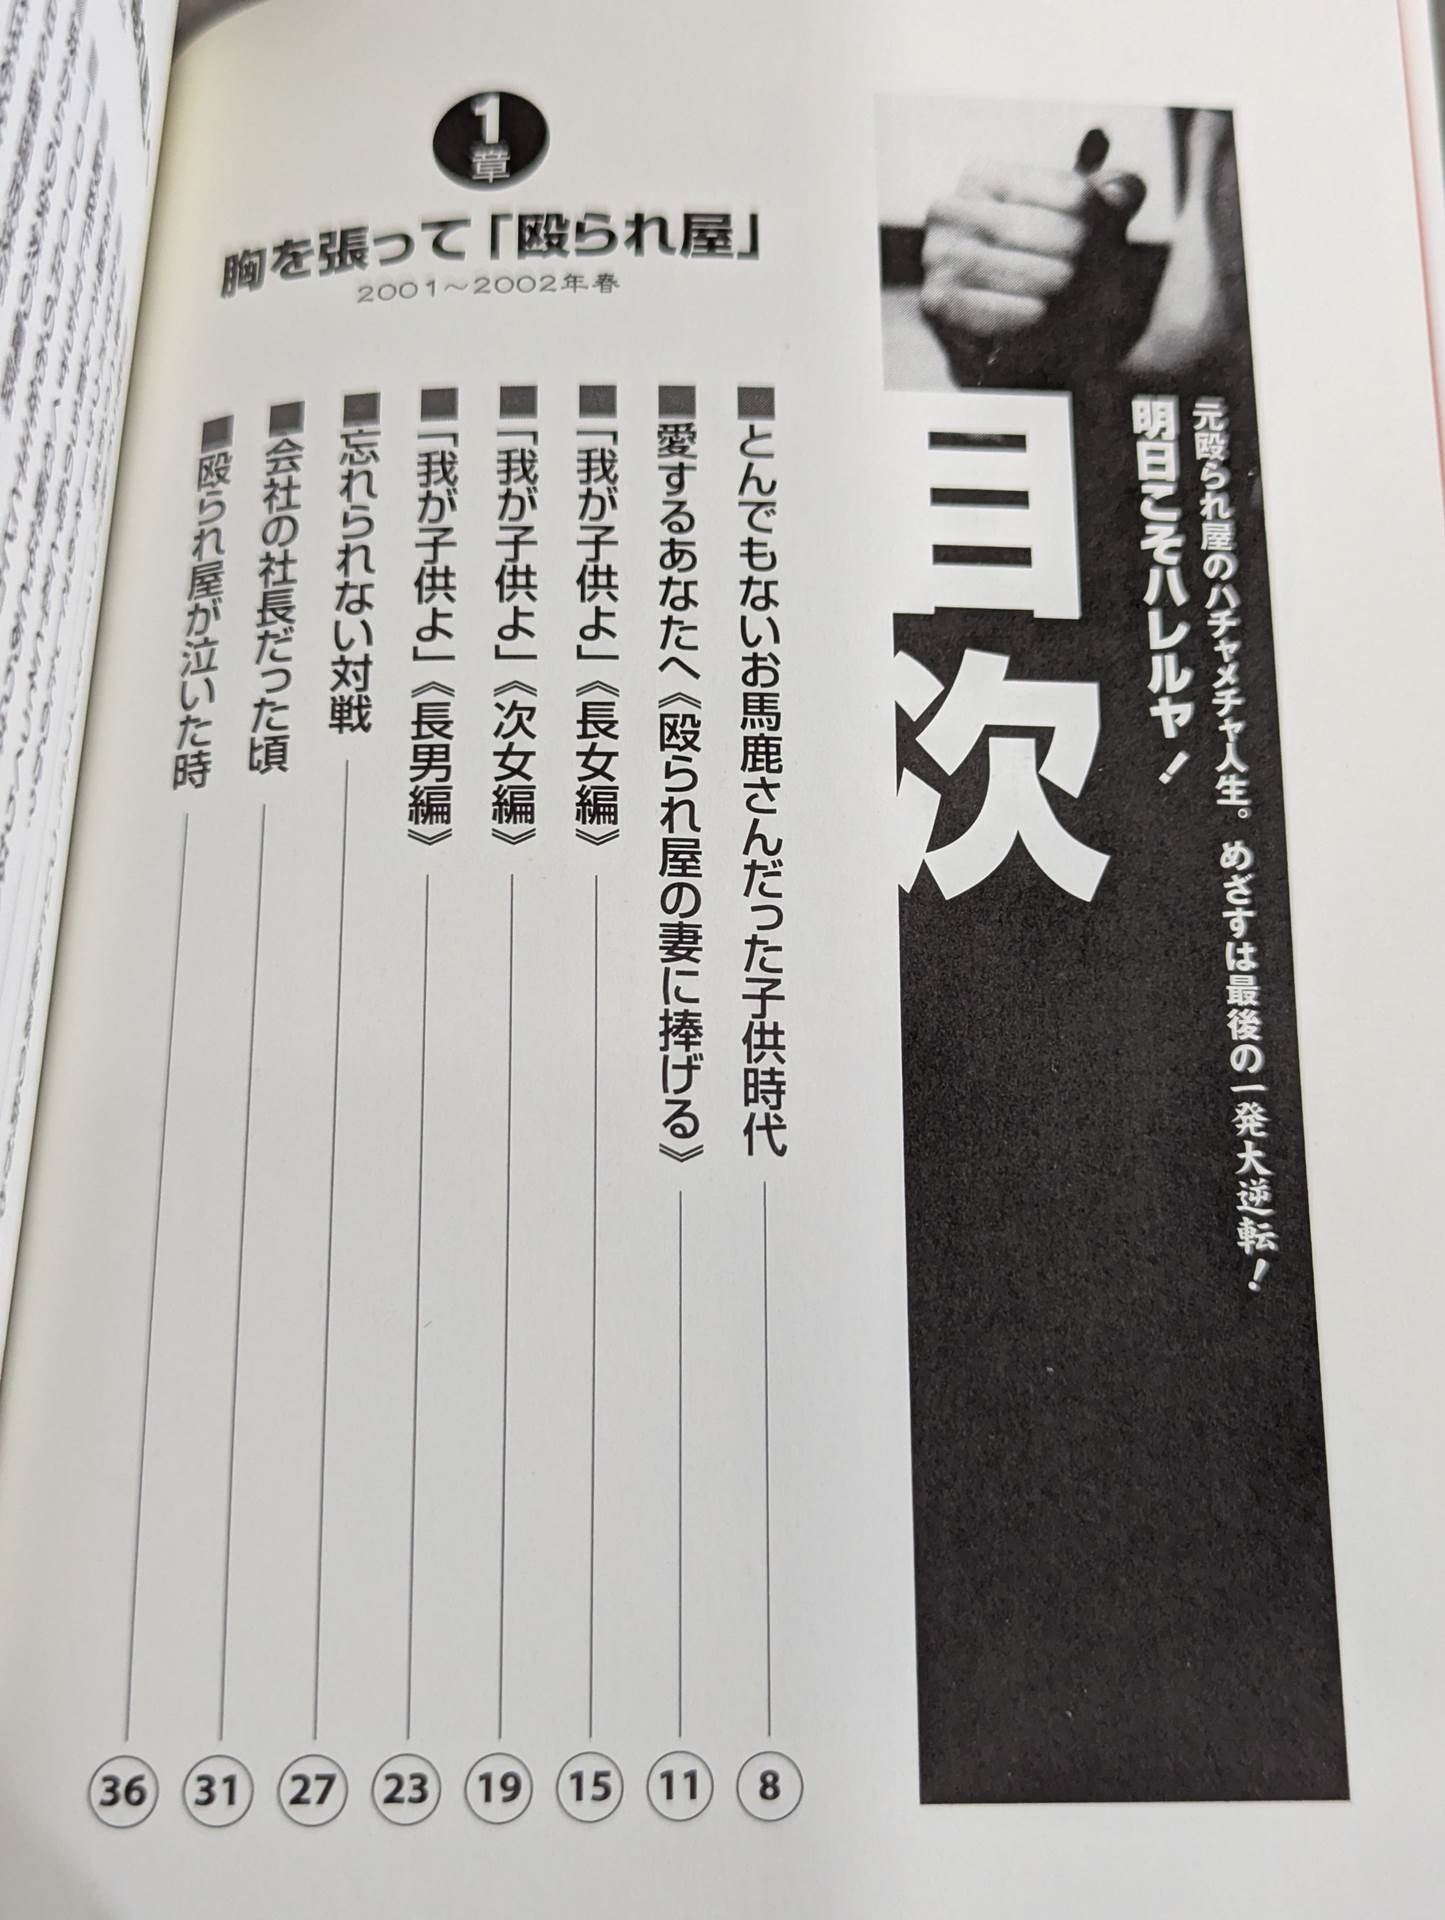 元殴られ屋のハチャメチャ人生。めざすは最後の一発大逆転！
明日こそハレルヤ！
目次
1章
胸を張って「殴られ屋」
2001～2002年春
■とんでもないお馬鹿さんだった子供時代 8
■愛するあなたへ《殴られ屋の妻に捧げる》 11
■「我が子供よ」《長女編》 15
■「我が子供よ」《次女編》 19
■「我が子供よ」《長男編》 23
■忘れられない対戦 27
■会社の社長だった頃 31
■殴られ屋が泣いた時 36